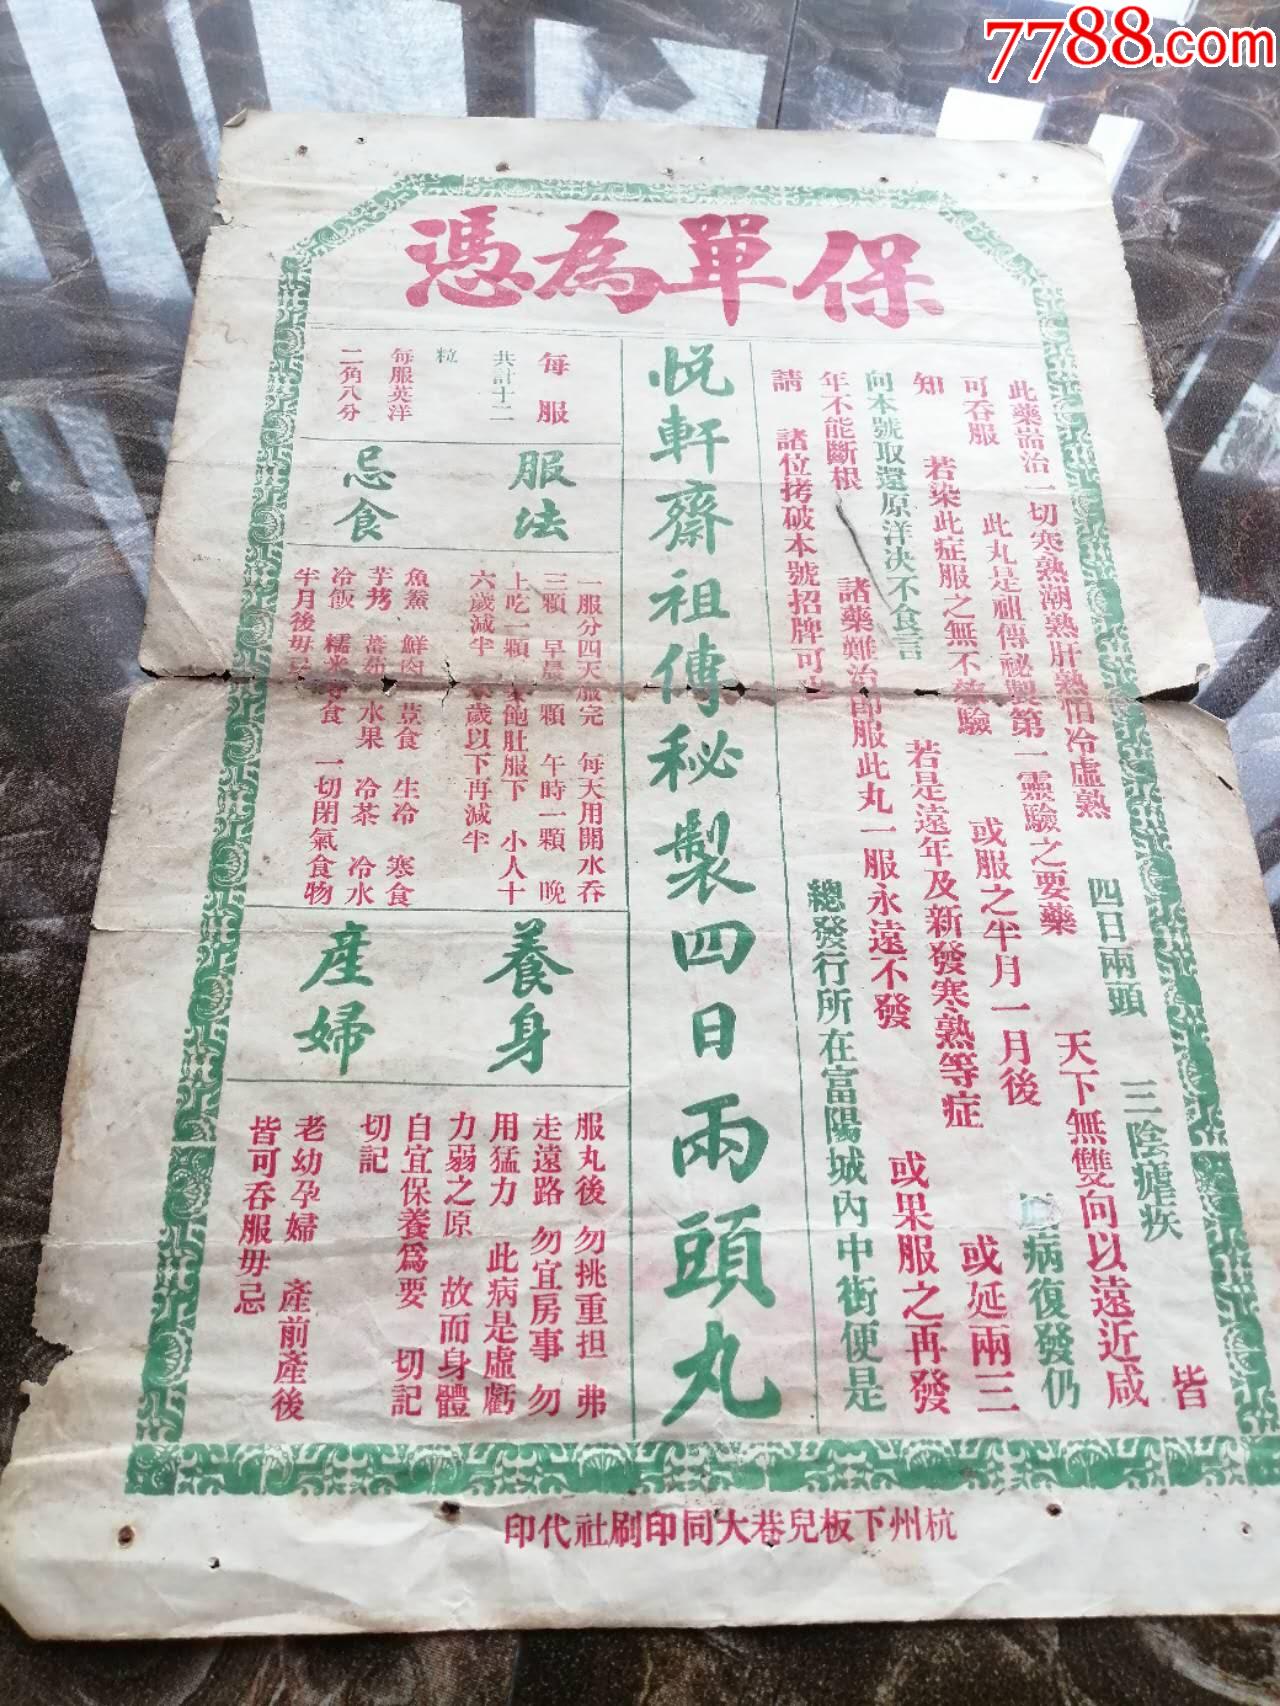 7788.com
保單為憑
此藥耑治一切寒熱潮熱肝熱怕冷虛熱 四日兩頭 三陰瘧疾 皆
可吞服 此丸是祖傳秘製第一靈驗之要藥 天下無雙向以遠近咸
知 若染此症服之無不 驗 或服之半月一月後 病復發仍
向本號取還原洋決不食言 若是遠年及新發寒熱等症 或延兩三
年不能斷根 諸藥難治即服此丸一服永遠不發 或果服之再發
請 諸位拷破本號招牌可也 總發行所在富陽城內中街便是
悅軒齋祖傳秘製四日兩頭丸
每服
共計十二
粒
每服英洋
二角八分
服法
一服分四天服完 每天用開水吞
三顆 早晨一顆 午時一顆 晚
上吃一顆 飽肚服下 小人十
六歲減半 歲以下再減半
忌食
魚鯗 鮮肉 荳食 生冷 寒食
芋艿 蕃茄 水果 冷茶 冷水
冷飯 糯米 食 一切閉氣食物
半月後毋忌
養身
服丸後 勿挑重担 弗
走遠路 勿宜房事 勿
用猛力 此病是虛虧
力弱之原 故而身體
自宜保養爲要 切記
切記
產婦
老幼孕婦 產前產後
皆可吞服毋忌
杭州下板兒巷大同印刷社代印